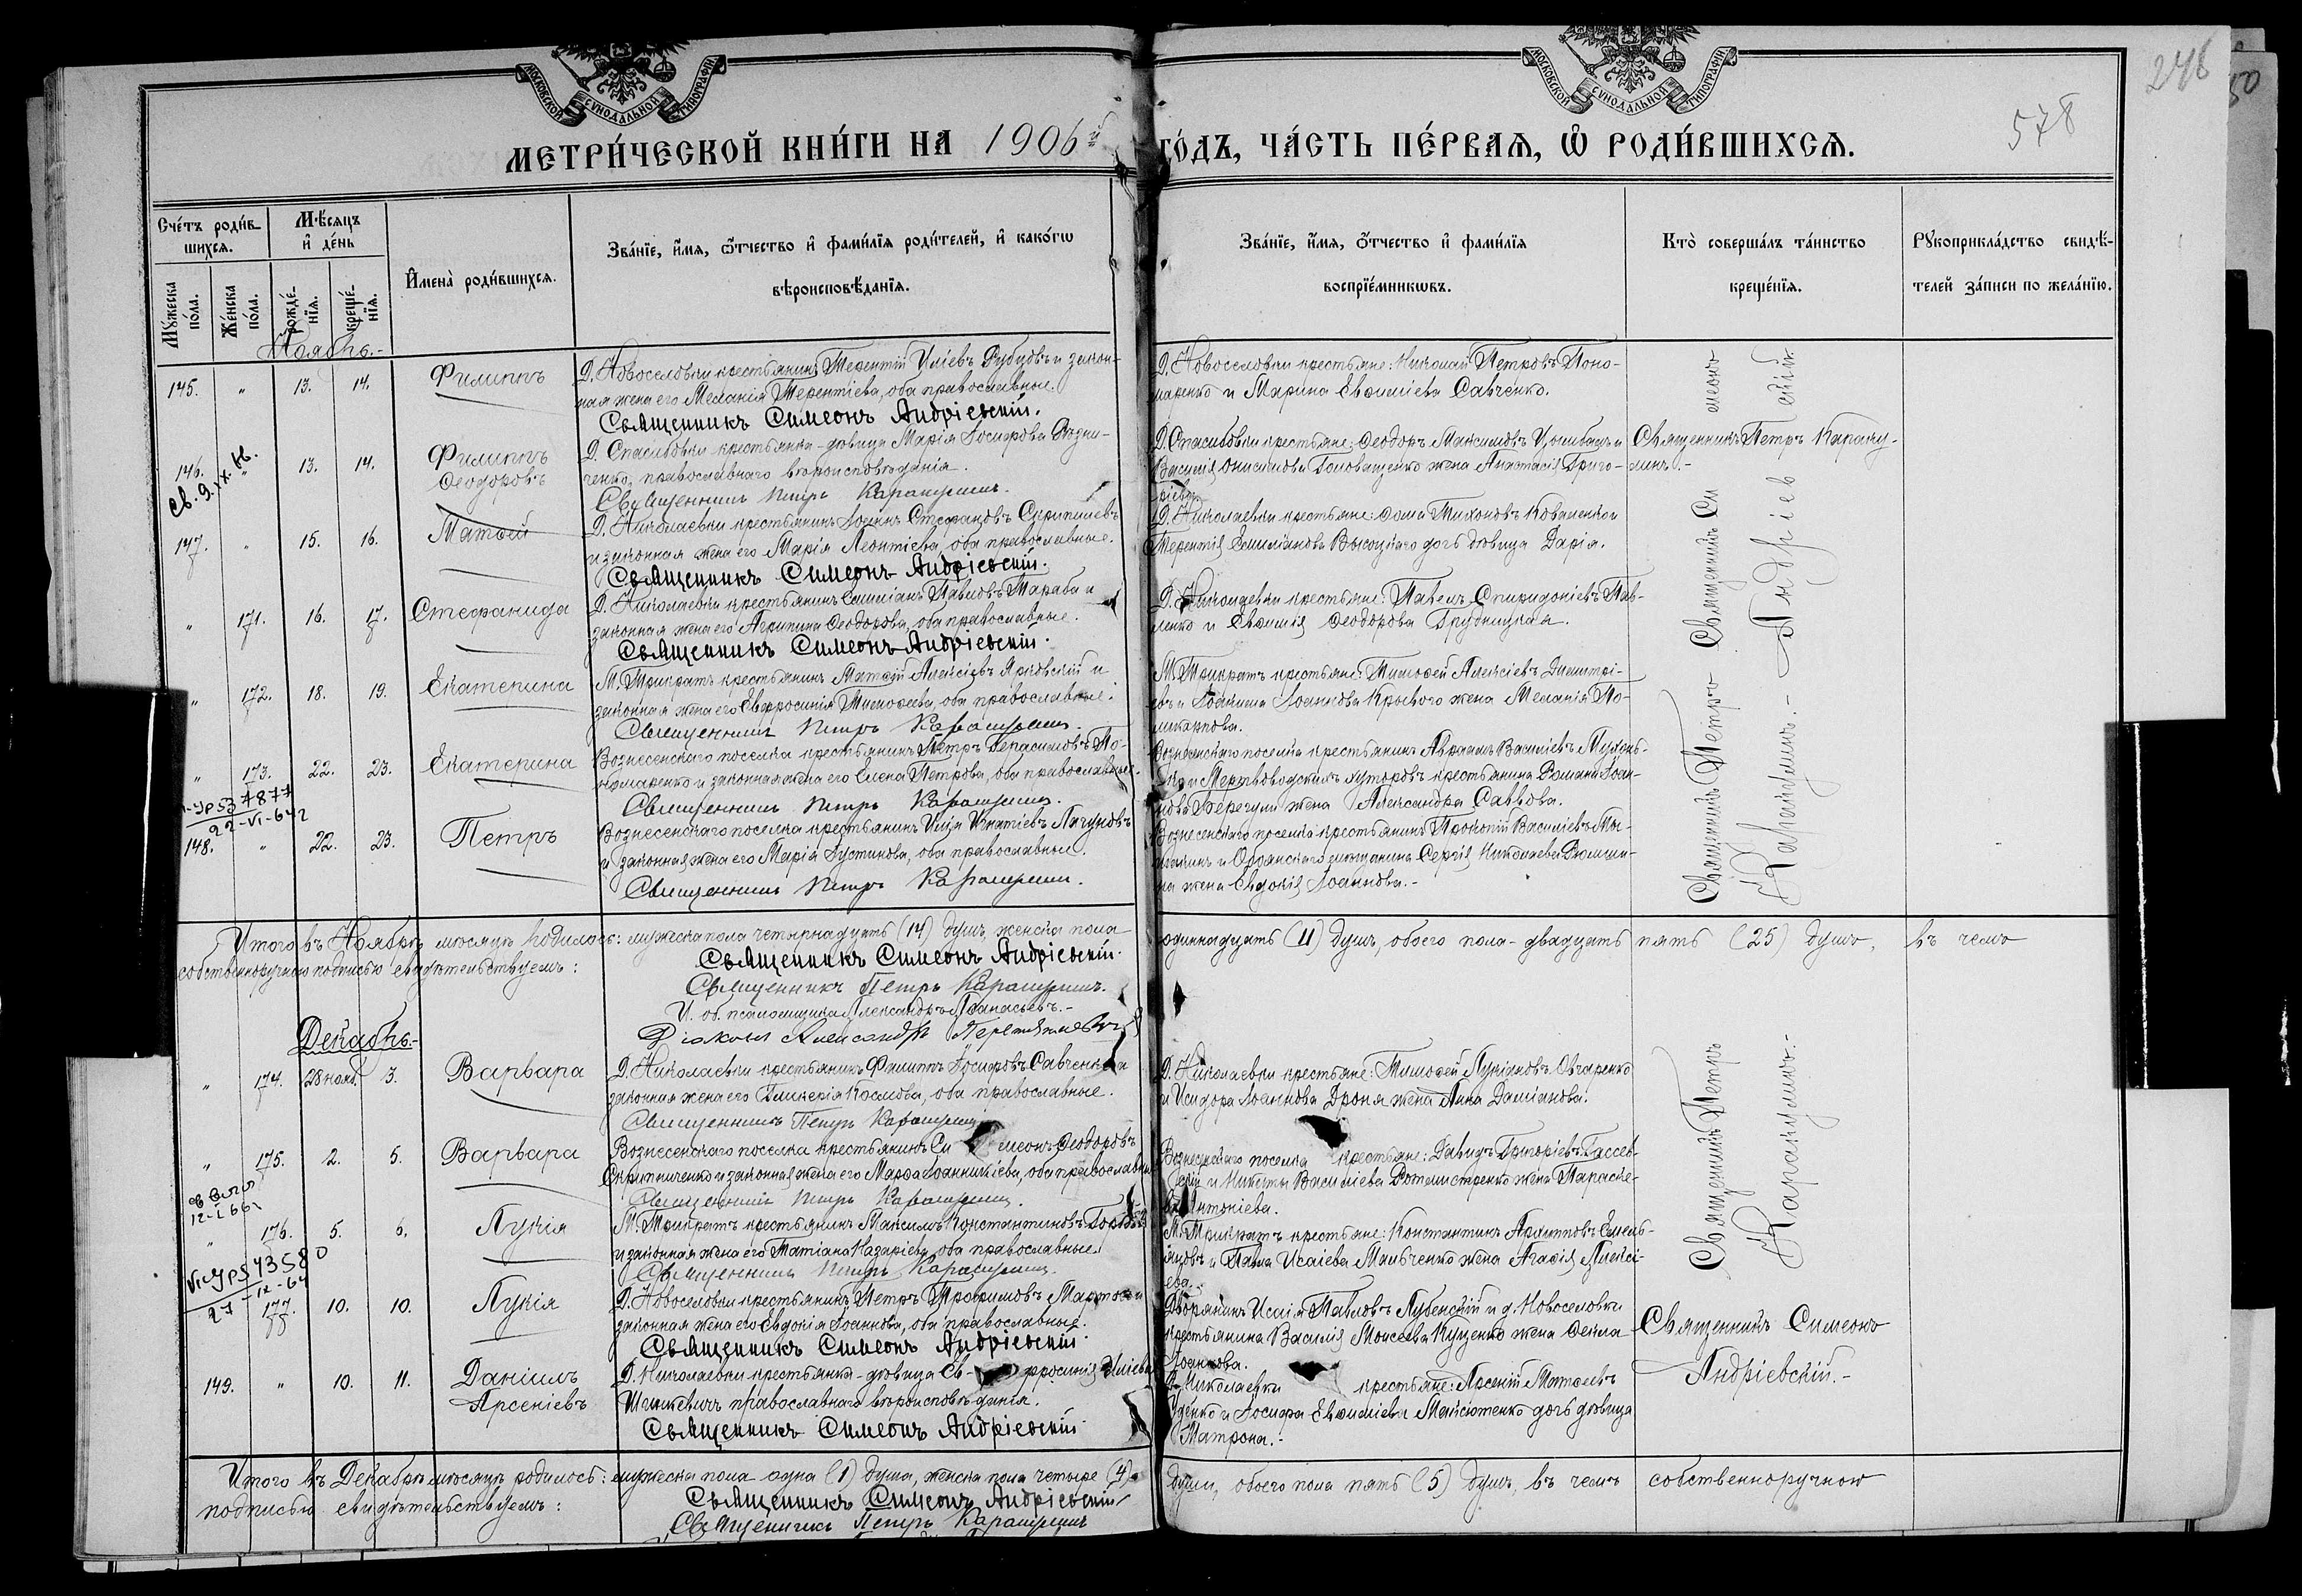 МОСКОВСКОЙ СѴНОДАЛЬНОЙ ТИПОГРАФІИ
МОСКОВСКОЙ СѴНОДАЛЬНОЙ ТИПОГРАФІИ
246
578
МЕТРИ́ЧЕСКОЙ КНИ́ГИ НА 1906й
ГО́ДЪ, ЧА́СТЬ ПЕ́РВАЯ, Ѽ РОДИ́ВШИХСЯ.
Сче́тъ роди́вшихся.
Мꙋ́жеска по́ла.
Же́нска по́ла.
Мѣ́сяцъ и҆ де́нь
рожде́нїя.
креще́нїя.
И҆мена̀ роди́вшихся.
Зва́нїе, и҆́мя, ѻ҆́тчество и҆ фами́лїя роди́телей, и҆ како́гѡ
вѣроисповѣ́данїя.
Зва́нїе, и҆́мя, ѻ҆́тчество и҆ фами́лїя
воспрїе́мникѡвъ.
Кто̀ соверша́лъ та́инство
креще́нїя.
Рꙋкоприкла́дство свидѣ́-
телей за́писи по жела́нїю.
Ноябрь.-
145. " 13. 14. Филиппъ
Д. Новоселовки крестьянинъ Терентій Иліевъ и закон-
ная жена его Меланія Терентіева, оба православные.
Священникъ Симеонъ Андріевскій.
Д. Новоселовки крестьяне: Николай Петровъ Поно-
маренко и Марина Евѳиміева Савченко.
146. " 13. 14. Филиппъ
Ѳеодоровъ
Св. 9.IX.
Д. Спасибовки крестьянка-дѣвица Марія Іосифова
ченко, православнаго вѣроисповѣданія.
Священникъ Петръ Карашулинъ.
Д. Спасибовки крестьяне: Ѳеодоръ Максимовъ и
Василія Онисимова Головащенко жена Анастасія Григо-
ріева.
Священникъ Петръ Карашу-
линъ.-
147. " 15. 16. Матѳей
Д. Николаевки крестьянинъ Іоаннъ Стефановъ
и законная жена его Марія Леонтіева, оба православные.
Священникъ Симеонъ Андріевскій.
Д. Николаевки крестьяне: Ѳома Тихоновъ Коваленко и
Терентія Емиліанова Высоцкаго дочь дѣвица Дарія.
" 171. 16. 17. Стефанида
Д. Николаевки крестьянинъ Емиліанъ Павловъ Тараба и
законная жена его Агрипина Ѳеодорова, оба православные.
Священникъ Симеонъ Андріевскій.
Д. Николаевки крестьяне: Павелъ Спиридоніевъ Пав-
ленко и Евѳимія Ѳеодорова Грудницкая.
" 172. 18. 19. Екатерина
М. Трикратъ крестьянинъ Матѳій Алексіевъ Янковскій и
законная жена его Евфросинія Тимоѳеева, оба православные.
Священникъ Петръ Карашулинъ.
М. Трикратъ крестьяне: Тимоѳей Алексіевъ Димитрі-
евъ и Іоакима Іоаннова Крывого жена Меланія По-
ликарпова.
" 173. 22. 23. Екатерина
Вознесенскаго поселка крестьянинъ Петръ Герасимовъ По-
номаренко и законная жена его Елена Петрова, оба православные.
Священникъ Петръ Карашулинъ.
Вознесенскаго поселка крестьянинъ Авраамъ Василіевъ
и Мертвоводскихъ хуторовъ крестьянина Романа Іоан-
нова Берегули жена Александра Саввова.
22-VI-64г
148. " 22. 23. Петръ
Вознесенскаго поселка крестьянинъ Илія Игнатіевъ Лагуновъ
и законная жена его Марія Іустинова, оба православные.
Священникъ Петръ Карашулинъ.
Вознесенскаго поселка крестьянинъ Прокопій Василіевъ
и мѣщанина Сергія Николаева Рюмши-
на жена Евдокія Іоаннова.-
Священникъ Петръ Карашулинъ.-
Священникъ Симеонъ Андріевскій
Итого въ Ноябрѣ мѣсяцѣ родилось: мужеска пола четырнадцать (14) душъ, женска пола
одиннадцать (11) душъ, обоего пола-двадцать пять (25) душъ, въ чемъ
собственноручною подписью свидѣтельствуемъ:
Священникъ Симеонъ Андріевскій.
Священникъ Петръ Карашулинъ.
И. об. псаломщика Александръ Аѳанасьевъ.-
Діаконъ Александръ
Декабрь.-
" 174. 28 нояб. 3. Варвара
Д. Николаевки крестьянинъ Филиппъ Іосифовъ Савченко и
законная жена его Гликерія Космова, оба православные.
Священникъ Петръ Карашулинъ
Д. Николаевки крестьяне: Тимоѳей Лукіановъ Овчаренко
и Исидора Іоаннова Дроня жена Анна Даміанова.
" 175. 2. 5. Варвара
Вознесенскаго поселка крестьянинъ Симеонъ Ѳеодоровъ
Скрипниченко и законная жена его Марѳа Іоанникіева, оба православные
Священникъ Петръ Карашулинъ.
Вознесенскаго поселка крестьяне: Давидъ Григоріевъ
и Никиты Василіева Ротмистренко жена Параске-
ва Антоніева.
12-I 66г
" 176. 5. 6. Лукія
М. Трикратъ крестьянинъ Максимъ Константиновъ
и законная жена его Татіана Назаріева, оба православные.
Священникъ Петръ Карашулинъ.
М. Трикратъ крестьяне: Константинъ Архипповъ Емель-
яновъ и Павла Исаіева Мамченко жена Агаѳія Алексі-
ева.
Священникъ Петръ
Карашулинъ.-
27-12-64
177. 10. 10. Лукія
Д. Новоселовки крестьянинъ Петръ Трофимовъ и
законная жена его Евдокія Іоаннова, оба православные.
Священникъ Симеонъ Андріевскій
Дворянинъ Исаія Павловъ Лубенскій и д. Новоселовки
крестьянина Василія Моисеева Куценко жена Ѳекла
Іоаннова.
Священникъ Симеонъ
Андріевскій.-
149. " 10. 11. Даніилъ
Арсеніевъ
Д. Николаевки крестьянка-дѣвица Евфросинія Иліева
православнаго вѣроисповѣданія.
Священникъ Симеонъ Андріевскій
Д. Николаевки крестьяне: Арсеній Матѳеевъ
и Іосифа Евѳиміева Максютенко дочь дѣвица
Матрона.-
Итого въ Декабрѣ мѣсяцѣ родилось: мужеска пола одна (1) душа, женска пола четыре (4)
души, обоего пола пять (5) душъ, въ чемъ собственноручною
подписью свидѣтельствуемъ:
Священникъ Симеонъ Андріевскій
Священникъ Петръ Карашулинъ